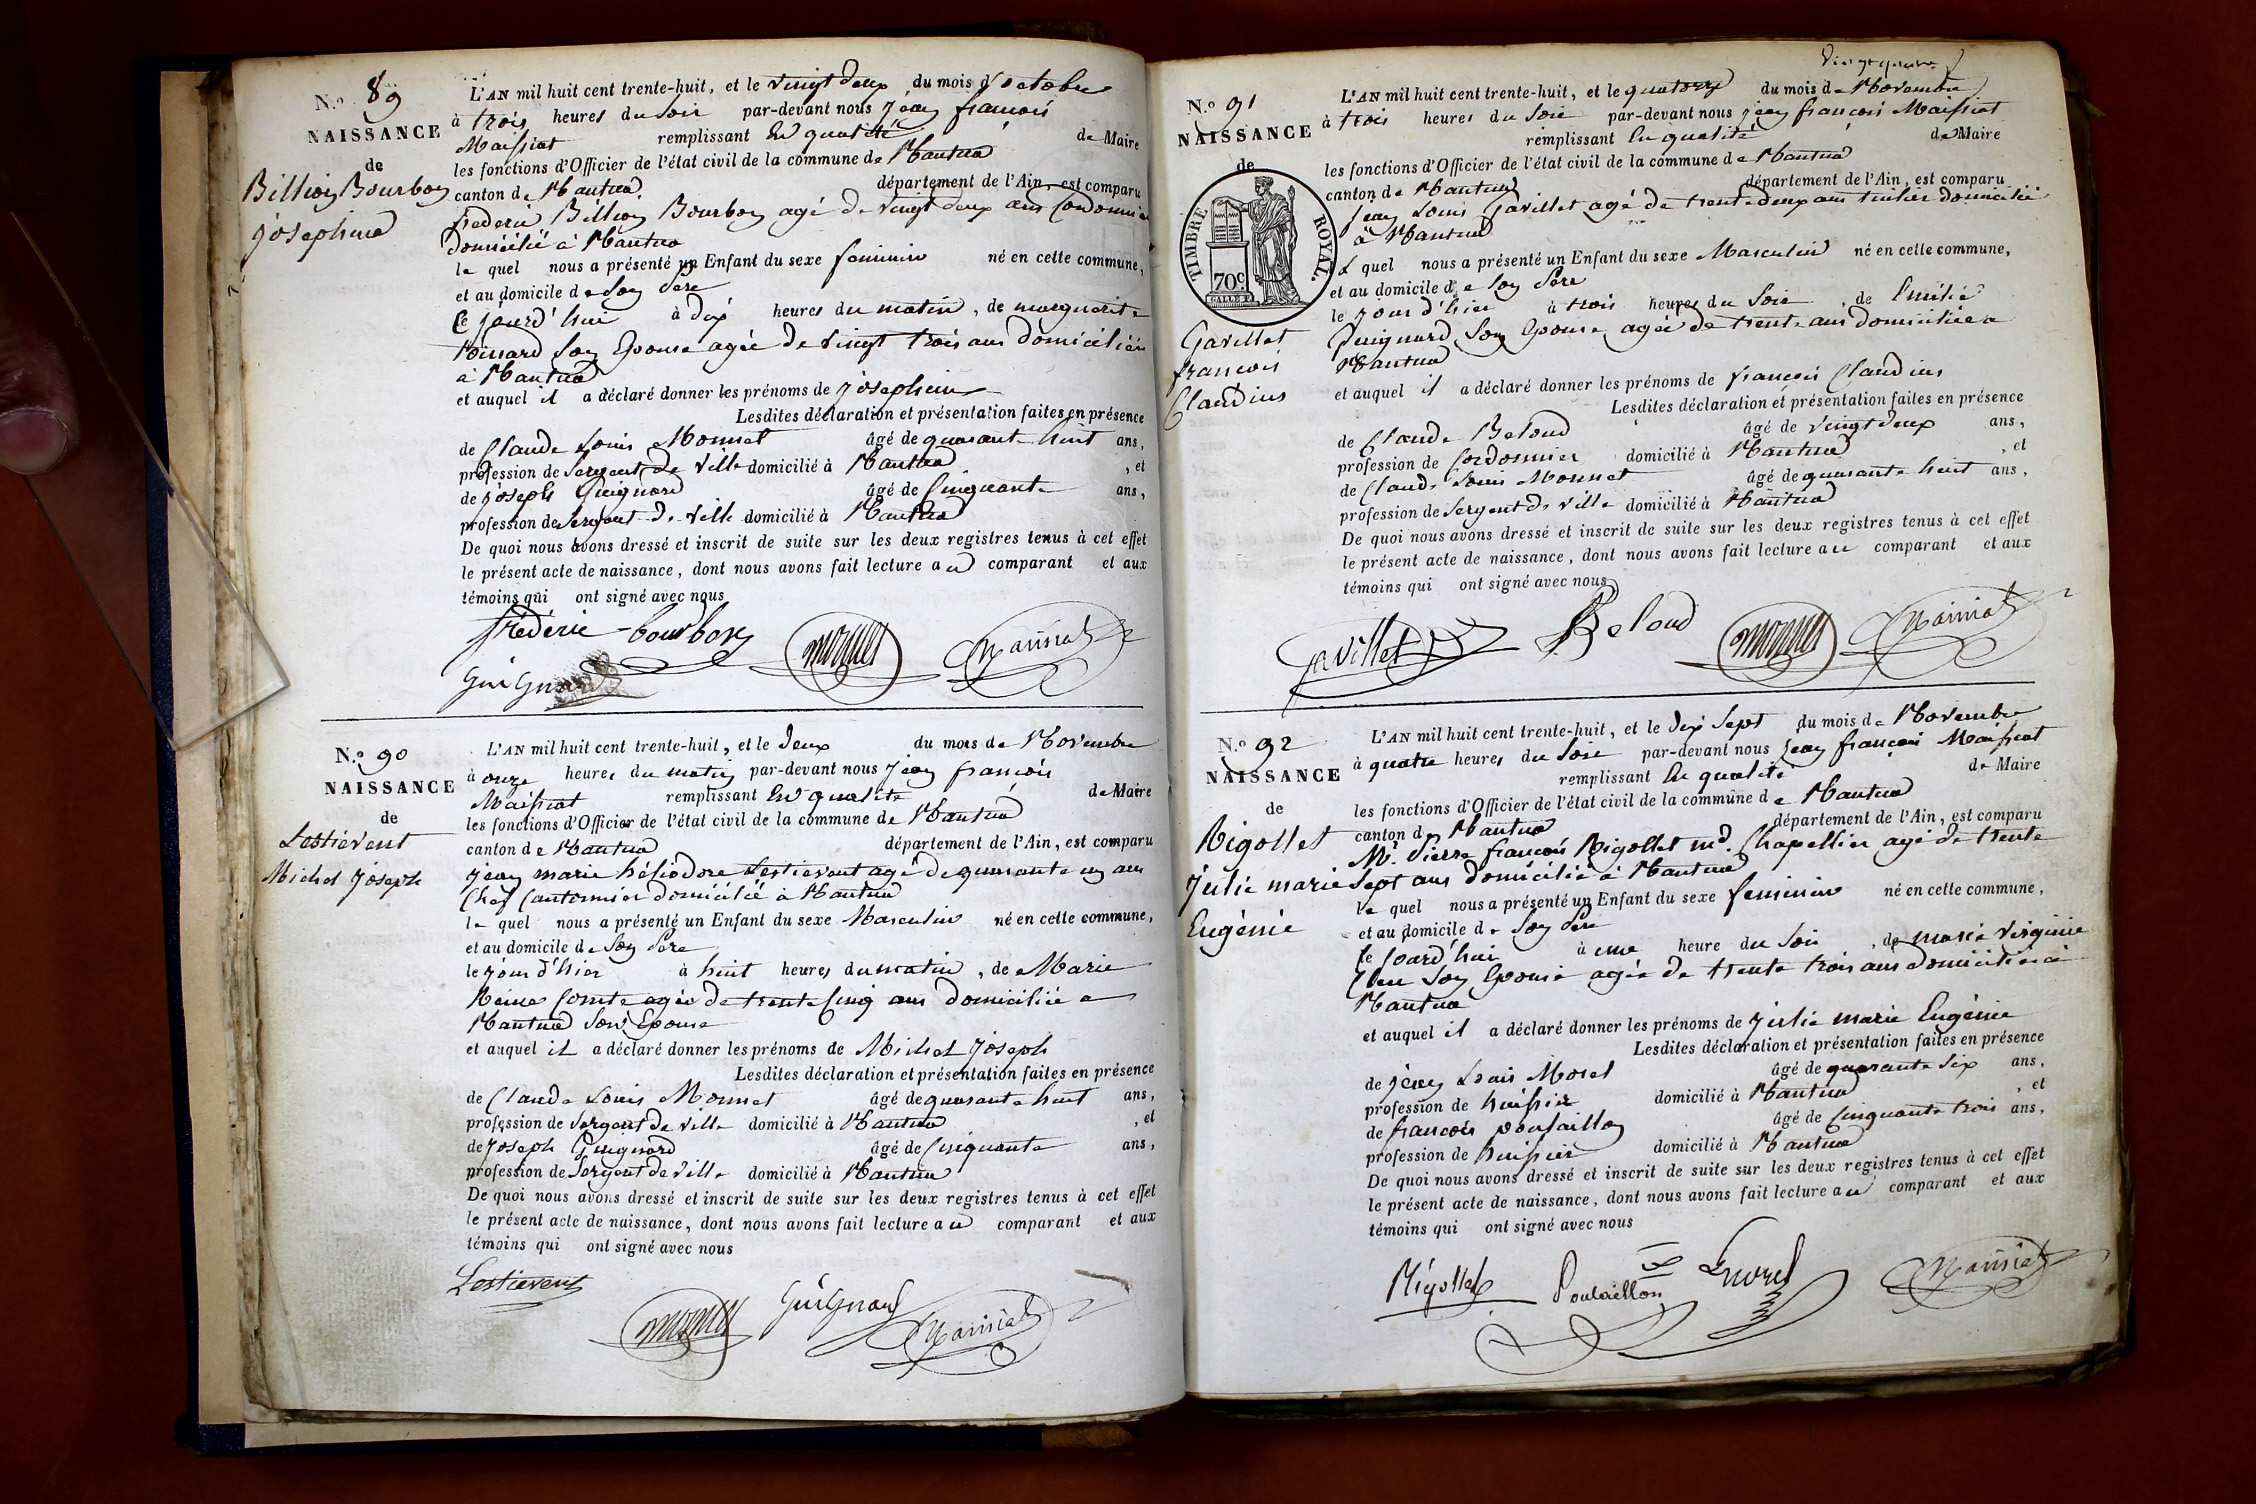 N.º 89
NAISSANCE
de
Billion Bourbon
joséphine
L'AN mil huit cent trente-huit, et le vingt deux du mois d'octobre
à trois heures du soir par-devant nous jean françois
Maissiat remplissant En qualité de Maire
les fonctions d'Officier de l'état civil de la commune de Nantua
canton de Nantua département de l'Ain, est comparu
frederic Billion Bourbon agé de vingt deux ans Cordonnier
domicilié à Nantua
le quel nous a présenté un Enfant du sexe feminin né en cette commune,
et au domicile de son Père
ce jourd'hui à dix heures du matin, de marguerite
son Epouse agée de vingt trois ans domiciliée
à Nantua
et auquel il a déclaré donner les prénoms de josephine
Lesdites déclaration et présentation faites en présence
de Claude Louis Monnet âgé de quarante huit ans,
profession de Sergent de ville domicilié à Nantua, et
de joseph Guignard âgé de Cinquante ans,
profession de Sergent de ville domicilié à Nantua
De quoi nous avons dressé et inscrit de suite sur les deux registres tenus à cet effet
le présent acte de naissance, dont nous avons fait lecture au comparant et aux
témoins qui ont signé avec nous
frédéric bourbon monnet Maissiat
Guignard
N.º 90
NAISSANCE
de
Lestievent
Michel joseph
L'AN mil huit cent trente-huit, et le deux du mois de Novembre
à onze heures du matin par-devant nous jean françois
Maissiat remplissant En qualité de Maire
les fonctions d'Officier de l'état civil de la commune de Nantua
canton de Nantua département de l'Ain, est comparu
jean marie héliodore Lestievent agé de quarante un ans
Chef Cantonnier domicilié à Nantua
le quel nous a présenté un Enfant du sexe Masculin né en cette commune,
et au domicile de son Père
le jour d'hier à huit heures du matin, de Marie
Reine Comte agée de trente Cinq ans domiciliée a
Nantua son Epouse
et auquel il a déclaré donner les prénoms de Michel joseph
Lesdites déclaration et présentation faites en présence
de Claude Louis Monnet âgé de quarante huit ans,
profession de Sergent de ville domicilié à Nantua, et
de joseph Guignard âgé de Cinquante ans,
profession de Sergent de ville domicilié à Nantua
De quoi nous avons dressé et inscrit de suite sur les deux registres tenus à cet effet
le présent acte de naissance, dont nous avons fait lecture au comparant et aux
témoins qui ont signé avec nous
Lestievent
monnet Guignard Maissiat
N.º 91
NAISSANCE
de
TIMBRE ROYAL.
70c
Gavillet
françois
Claudius
L'AN mil huit cent trente-huit, et le quatorze du mois de Novembre
à trois heures du Soir par-devant nous jean françois Maissiat
remplissant En qualité de Maire
les fonctions d'Officier de l'état civil de la commune de Nantua
canton de Nantua département de l'Ain, est comparu
jean Louis Gavillet agé de trente deux ans domicilié
à Nantua
Le quel nous a présenté un Enfant du sexe Masculin né en cette commune,
et au domicile de son Père
le jour d'hier à trois heures du Soir, de Emilie
Guignard son Epouse agée de trente ans domiciliée a
Nantua
et auquel il a déclaré donner les prénoms de françois Claudius
Lesdites déclaration et présentation faites en présence
de Claude Beloud âgé de vingt deux ans,
profession de Cordonnier domicilié à Nantua, et
de Claude Louis Monnet âgé de quarante huit ans,
profession de Sergent de ville domicilié à Nantua
De quoi nous avons dressé et inscrit de suite sur les deux registres tenus à cet effet
le présent acte de naissance, dont nous avons fait lecture au comparant et aux
témoins qui ont signé avec nous
Gavillet Beloud monnet Maissiat
N.º 92
NAISSANCE
de
Rigollet
julie marie
Eugénie
L'AN mil huit cent trente-huit, et le dix Sept du mois de Novembre
à quatre heures du Soir par-devant nous jean françois Maissiat
remplissant En qualité de Maire
les fonctions d'Officier de l'état civil de la commune de Nantua
canton de Nantua département de l'Ain, est comparu
Mr. Pierre françois Rigollet md. Chapellier agé de trente
Sept ans domicilié à Nantua
le quel nous a présenté un Enfant du sexe feminin né en cette commune,
et au domicile de son Père
ce jourd'hui à une heure du Soir, de marie virginie
son Epouse agée de trente trois ans domiciliée à
Nantua
et auquel il a déclaré donner les prénoms de julie marie Eugénie
Lesdites déclaration et présentation faites en présence
de jean Louis Morel âgé de quarante Six ans,
profession de huissier domicilié à Nantua, et
de françois poulaillon âgé de Cinquante trois ans,
profession de huissier domicilié à Nantua
De quoi nous avons dressé et inscrit de suite sur les deux registres tenus à cet effet
le présent acte de naissance, dont nous avons fait lecture au comparant et aux
témoins qui ont signé avec nous
Rigollet Poulaillon Lmorel Maissiat